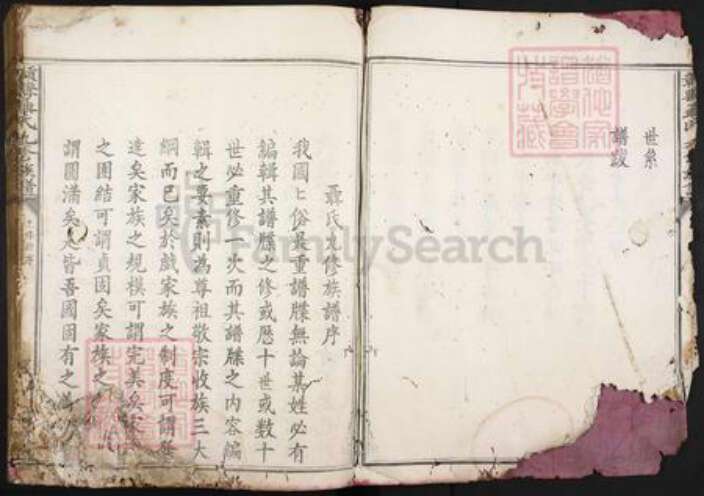 世系
譜跋
聶氏九修族譜序
我國七俗最重譜牒無論某姓必有
編輯其譜牒之修或歷十世或數十
世必重修一次而其譜牒之內容編
輯之要素則為尊祖敬宗收族三大
綱而已矣於戲家族之制度可謂
達矣家族之規模可謂完美矣家
之团結可謂貞固矣家族之
謂圓滿矣是皆吾國固有之
FamilySearch